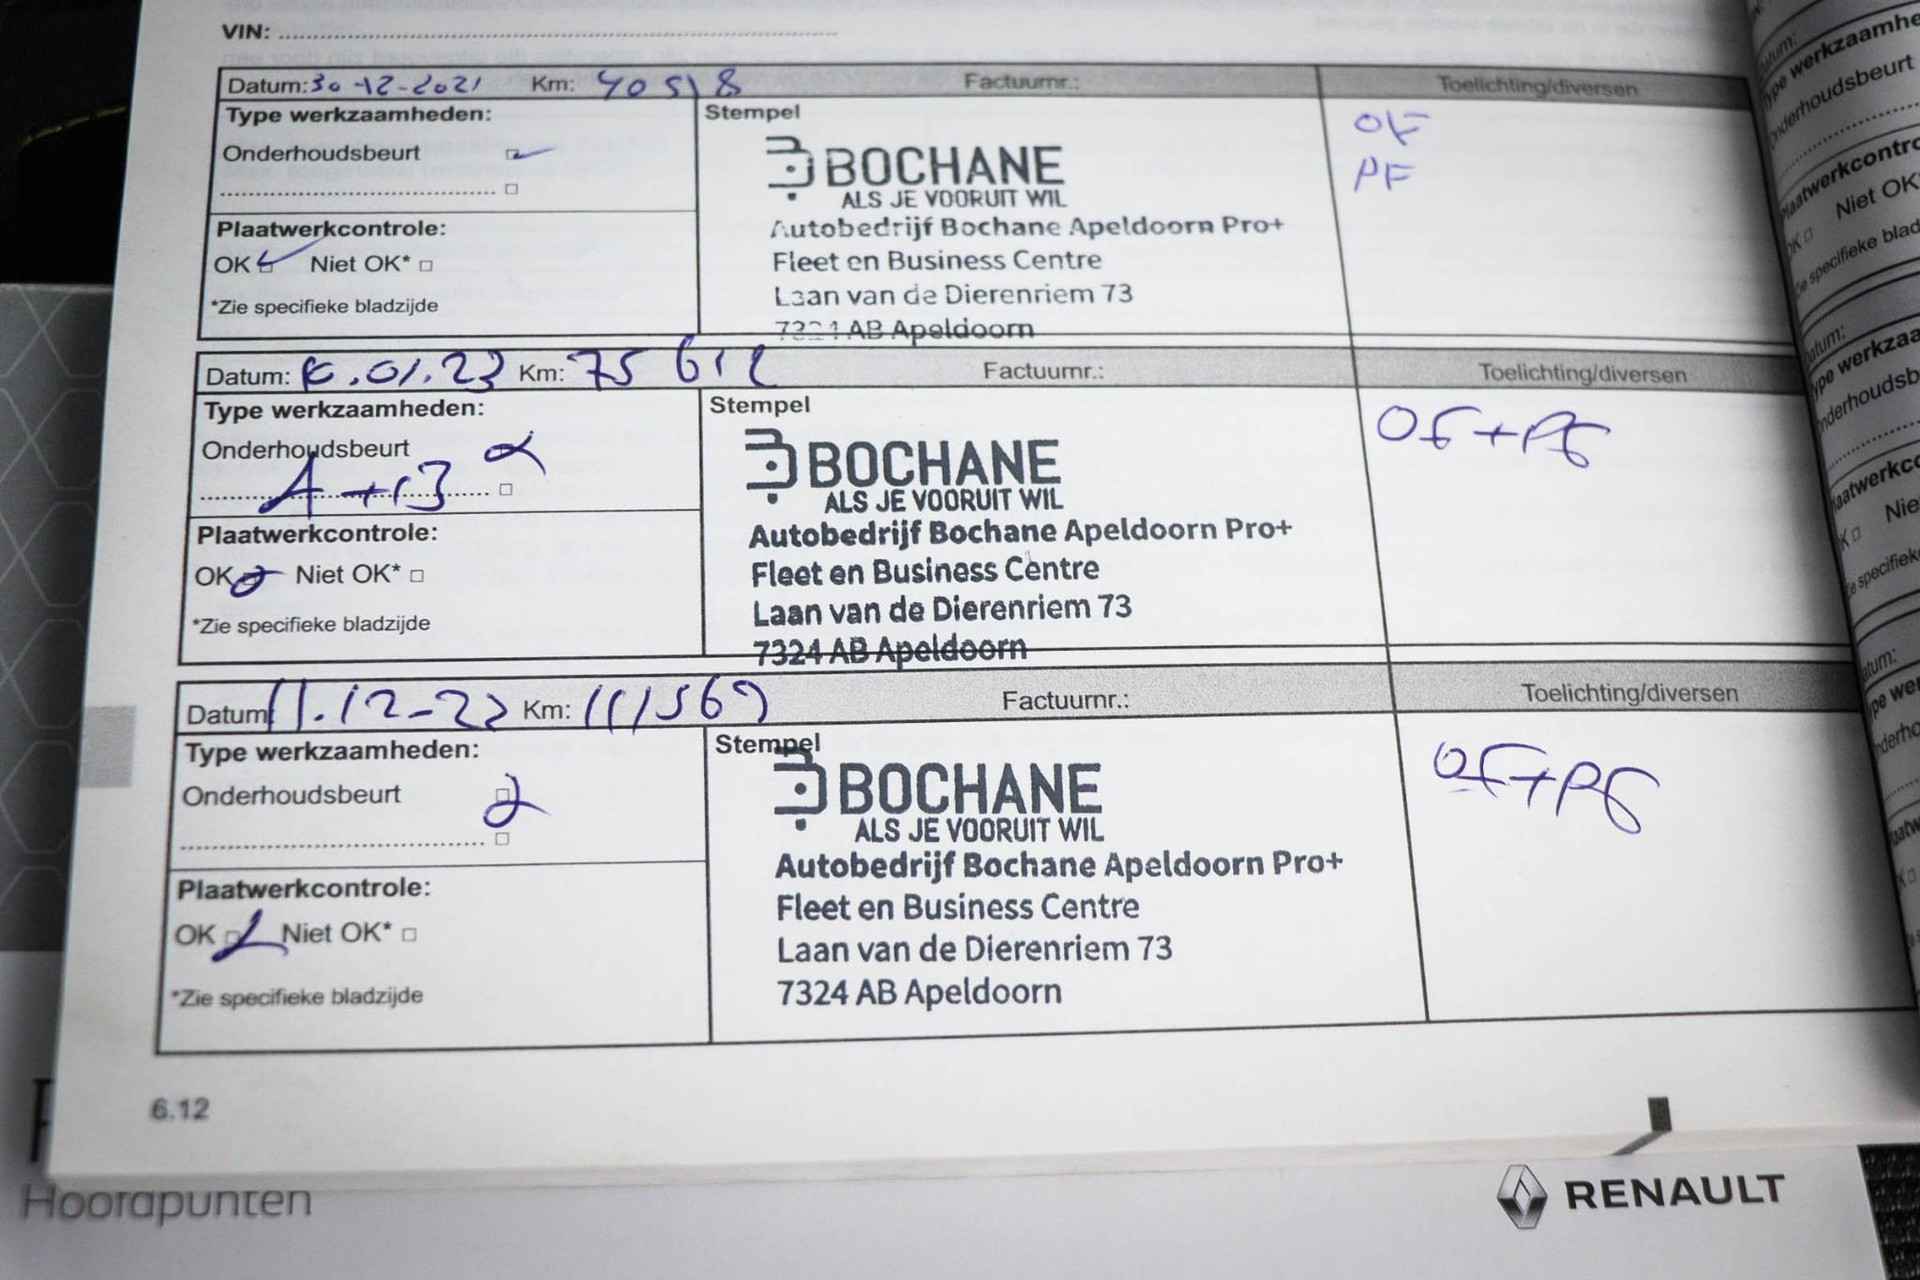 VIN:
Datum: 30-12-2021 Km: 40518 Factuurnr.: Toelichting/diversen
Type werkzaamheden: Stempel
Onderhoudsbeurt
BOCHANE
ALS JE VOORUIT WIL
Autobedrijf Bochane Apeldoorn Pro+
Fleet en Business Centre
Laan van de Dierenriem 73
7324 AB Apeldoorn
OF
PF
Plaatwerkcontrole:
OK Niet OK*
*Zie specifieke bladzijde
Datum: .01.23 Km: 75612 Factuurnr.: Toelichting/diversen
Type werkzaamheden: Stempel
Onderhoudsbeurt
A+B
BOCHANE
ALS JE VOORUIT WIL
Autobedrijf Bochane Apeldoorn Pro+
Fleet en Business Centre
Laan van de Dierenriem 73
7324 AB Apeldoorn
OF+PF
Plaatwerkcontrole:
OK Niet OK*
*Zie specifieke bladzijde
Datum: 11.12-23 Km: 111569 Factuurnr.: Toelichting/diversen
Type werkzaamheden: Stempel
Onderhoudsbeurt
BOCHANE
ALS JE VOORUIT WIL
Autobedrijf Bochane Apeldoorn Pro+
Fleet en Business Centre
Laan van de Dierenriem 73
7324 AB Apeldoorn
OF+PF
Plaatwerkcontrole:
OK Niet OK*
*Zie specifieke bladzijde
6.12
RENAULT